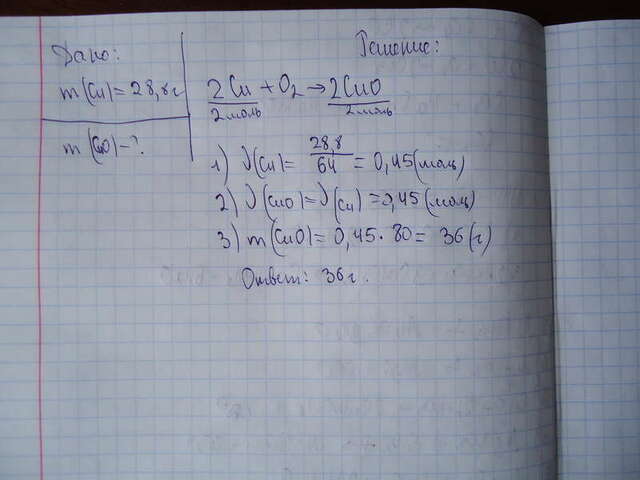 Дано:
m(Cu)=28,8г
m(CuO)-?
Решение:
2Cu+O₂→2CuO
2моль 2моль
1) ν(Cu)= 28,8/64 =0,45(моль)
2) ν(CuO)=ν(Cu)=0,45(моль)
3) m(CuO)=0,45·80= 36(г)
Ответ: 36г.